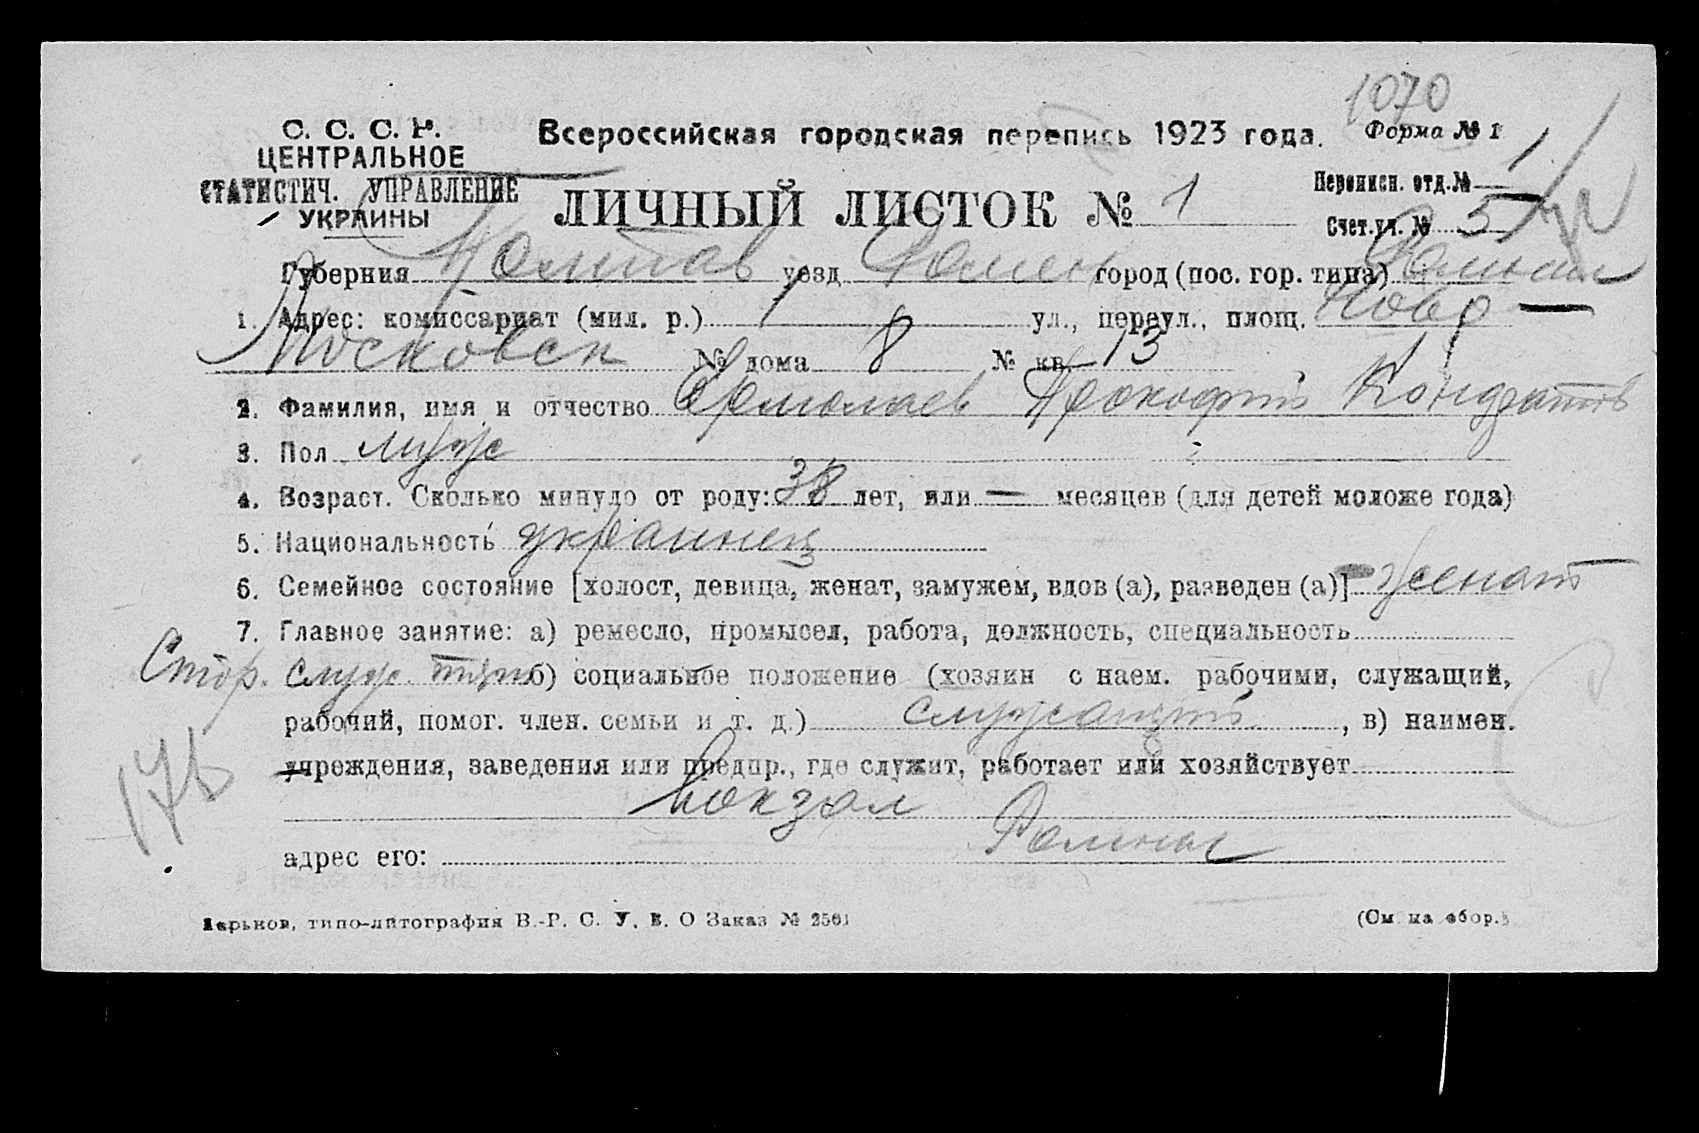 1070
С. С. С. Р.
ЦЕНТРАЛЬНОЕ
СТАТИСТИЧ. УПРАВЛЕНИЕ
УКРАИНЫ
Всероссийская городская перепись 1923 года. Форма № 1
ЛИЧНЫЙ ЛИСТОК № 1
Переписн. отд.№ 1
Счет.уч. № 5
Губерния Полтав уезд Ромен город (пос. гор. типа) Ромны
1. Адрес: комиссариат (мил. р.) 1 ул., переул., площ. Ново
Московск № дома 8 № кв 13
2. Фамилия, имя и отчество Ермолаев Прокофий Кондратов
3. Пол муж
4. Возраст. Сколько минуло от роду: 38 лет, или — месяцев (для детей моложе года)
5. Национальность украинец
6. Семейное состояние [холост, девица, женат, замужем, вдов (а), разведен (а)] женат
7. Главное занятие: а) ремесло, промысел, работа, должность, специальность
Стор. служ. б) социальное положение (хозяин с наем. рабочими, служащий,
рабочий, помог. член. семьи и т. д.) служащий, в) наимен.
учреждения, заведения или предпр., где служит, работает или хозяйствует
вокзал
адрес его: Ромны
Харьков, типо-литография В.-Р. С. У. В. О Заказ № 2561
(См на обор.)